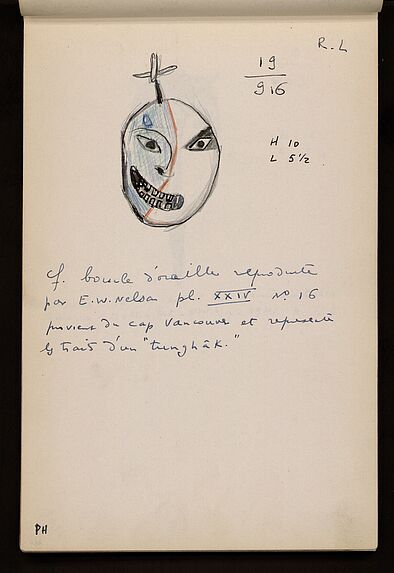 R.L
19
916
H 10
L 5½
cf. boucle d'oreille reproduite
par E.W. Nelson pl. XXIV No 16
provient du cap Vancouver et représente
les traits d'un "tunghâk."
PH